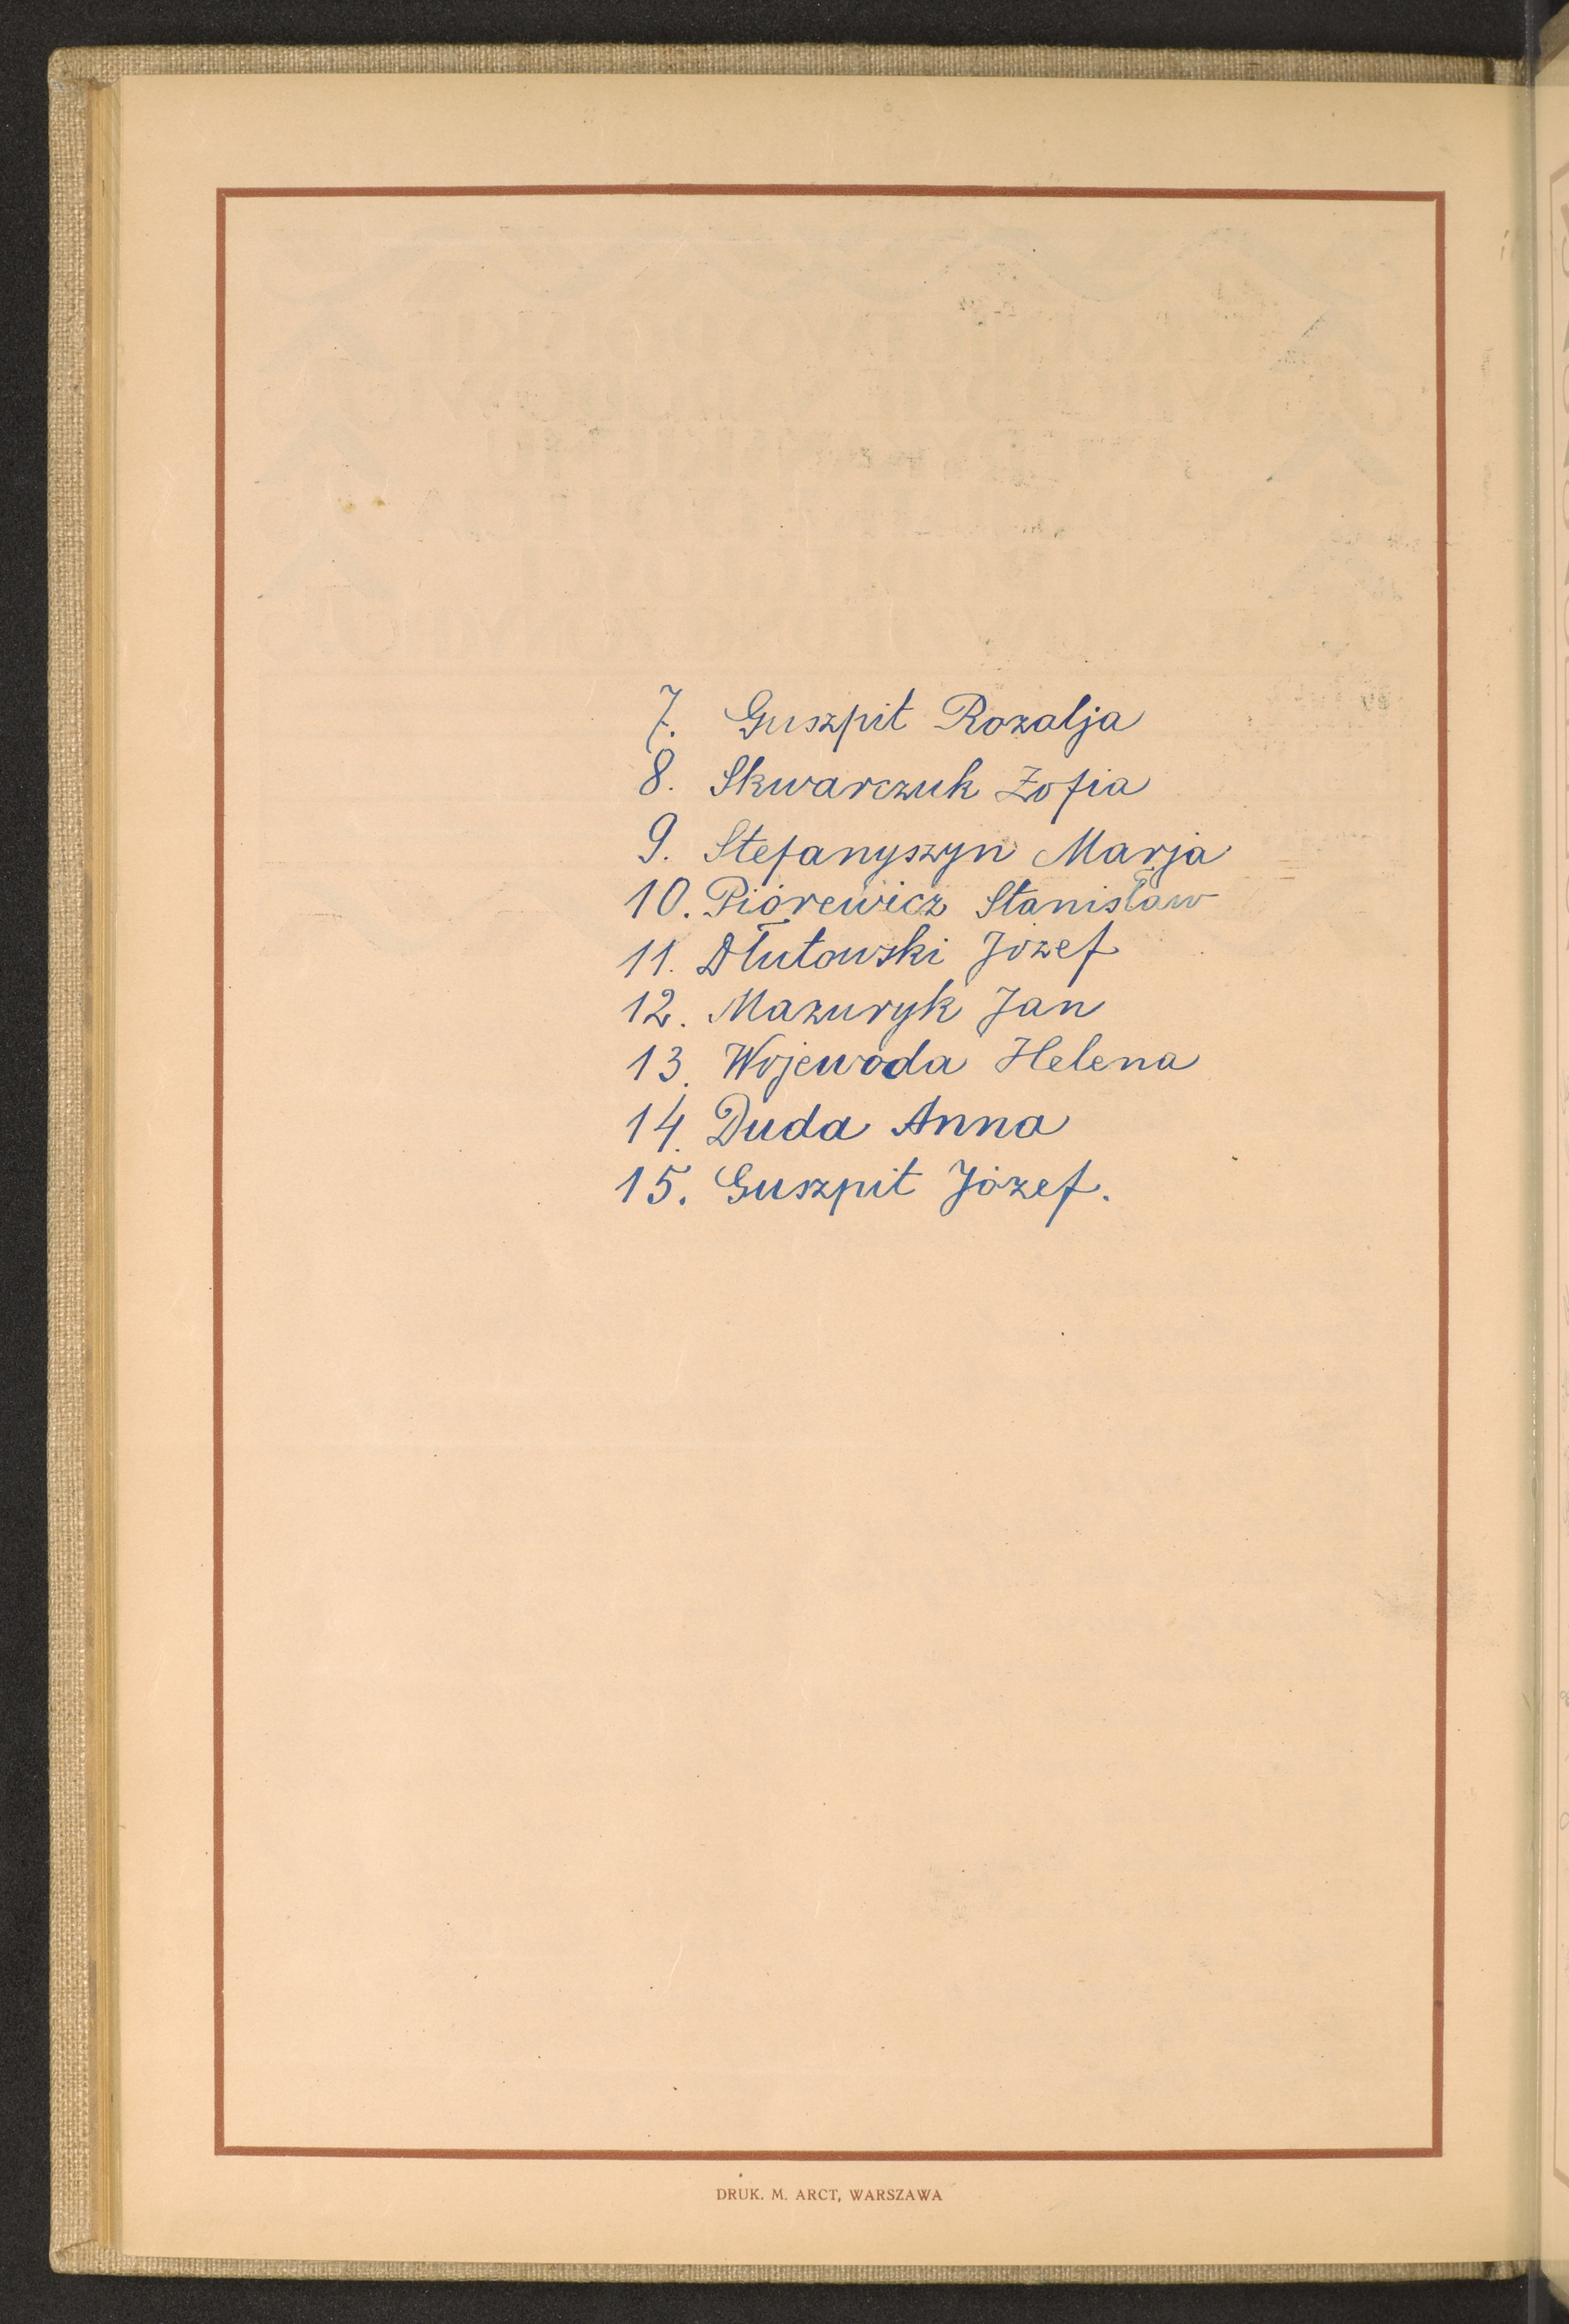 7. Guszpit Rozalja
8. Skwarczuk Zofia
9. Stefanyszyn Marja
10. Piórewicz Stanisław
11. Dłutowski Józef
12. Mazuryk Jan
13. Wojewoda Helena
14. Duda Anna
15. Guszpit Józef.
DRUK. M. ARCT, WARSZAWA